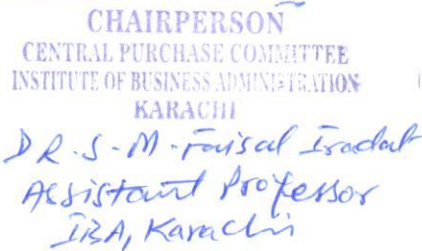 CHAIRPERSON
CENTRAL PURCHASE COMMITTEE
INSTITUTE OF BUSINESS ADMINISTRATION
KARACHI
DR. S - M - Faisal Iradat
Assistant Professor
IBA, Karachi